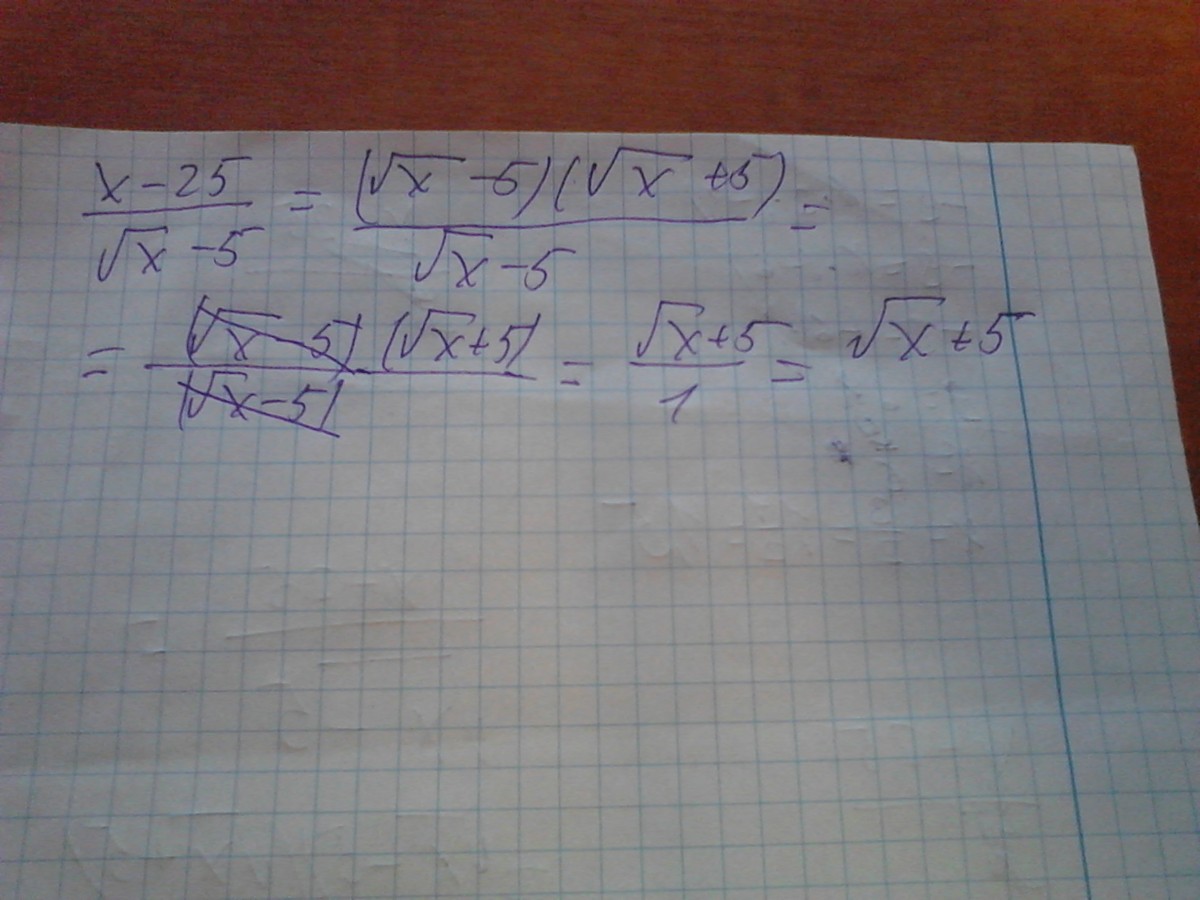 (x-25)/(√x-5) = ((√x-5)(√x+5))/(√x-5) =
= ((√x-5)(√x+5))/((√x-5)) = (√x+5)/1 = √x+5